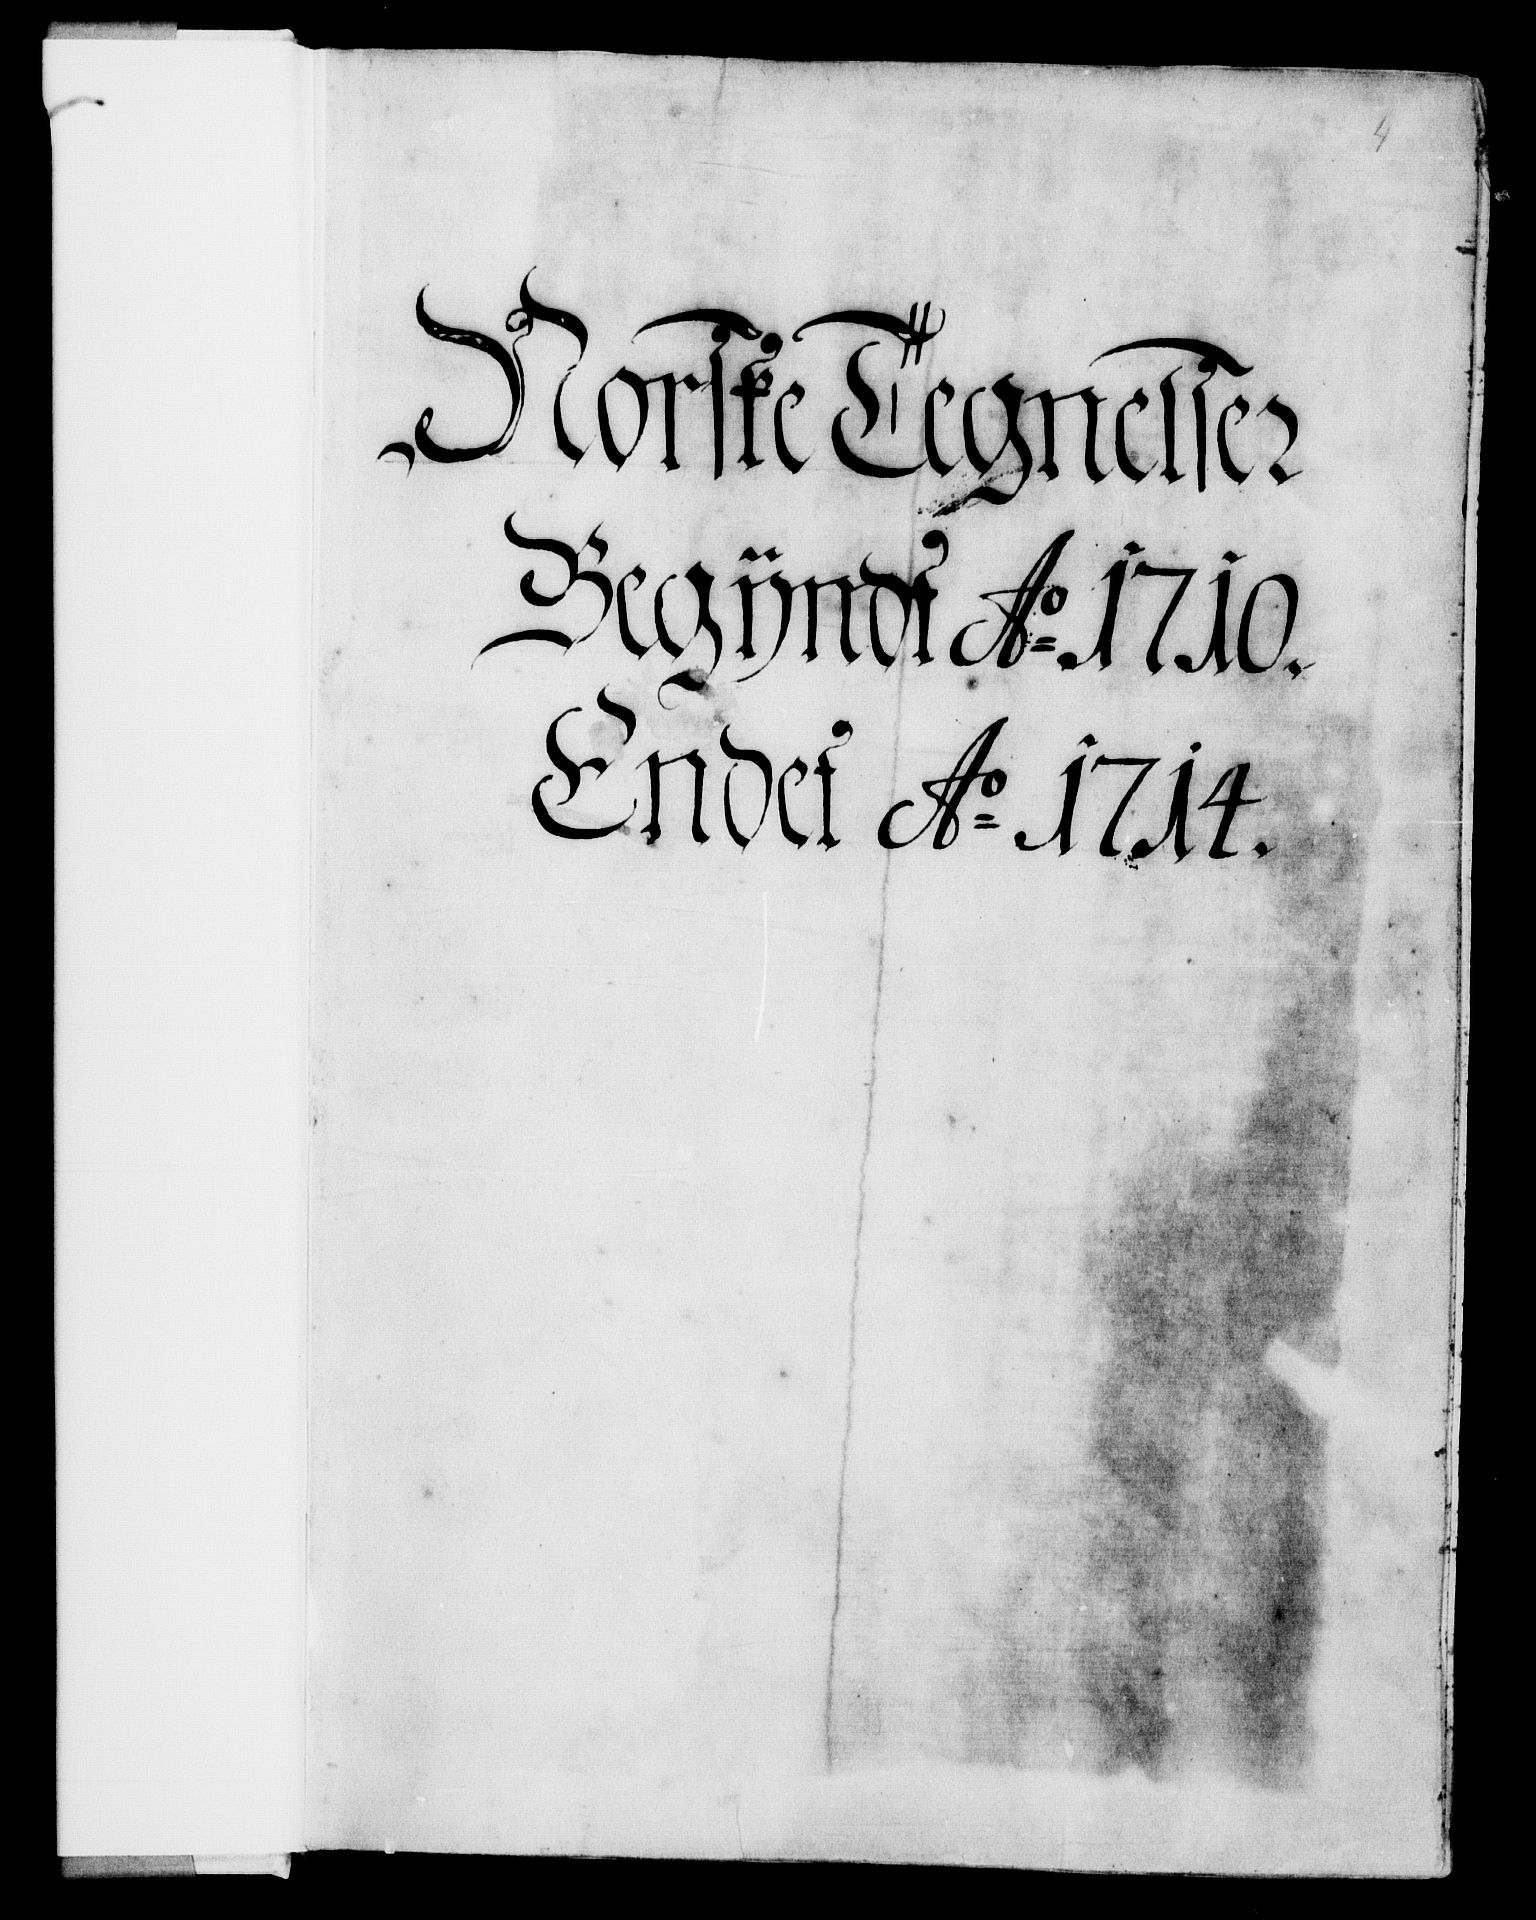 4
Norske Tegnelser
Begÿndt Aº. 1710.
Endet Aº. 1714.